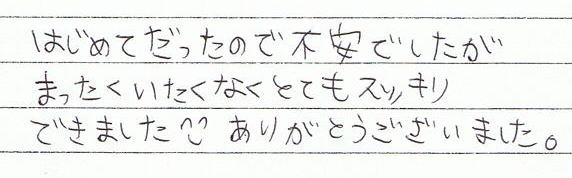 はじめてだったので不安でしたが
まったくいたくなくとてもスッキリ
できました ありがとうございました。